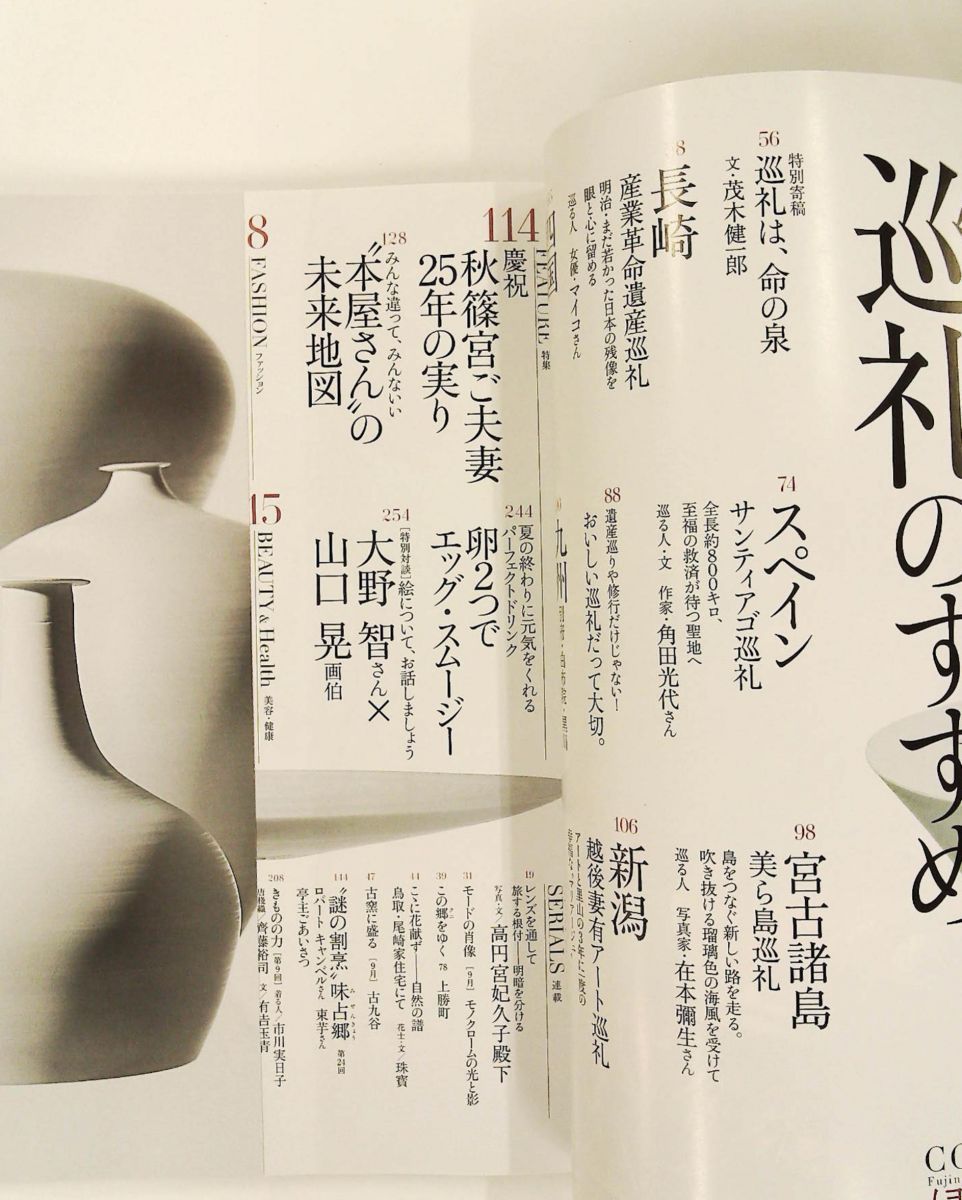 巡礼のすすめ
特別寄稿
56
巡礼は、命の泉
文・茂木健一郎
74
スペイン
サンティアゴ巡礼
全長約800キロ、
至福の救済が待つ聖地へ
巡る人・文 作家・角田光代さん
98
宮古諸島
美ら島巡礼
島をつなぐ新しい路を走る。
吹き抜ける瑠璃色の海風を受けて
巡る人 写真家・在本彌生さん
8
長崎
産業革命遺産巡礼
明治・まだ若かった日本の残像を
眼と心に留める
巡る人 女優・マイコさん
88
遺産巡りや修行だけじゃない!
おいしい巡礼だって大切。
106
新潟
越後妻有アート巡礼
九州
FEATURE 特集
114
慶祝
秋篠宮ご夫妻
25年の実り
128
みんな違って、みんないい
〝本屋さん〟の
未来地図
244
夏の終わりに元気をくれる
パーフェクトドリンク
卵2つで
エッグ・スムージー
254
[特別対談]絵について、お話しましょう
大野 智さん×
山口 晃画伯
8
FASHION ファッション
15
BEAUTY & Health 美容・健康
SERIALS 連載
19
レンズを通して
旅する根付──明暗を分ける
写真・文/高円宮妃久子殿下
31
モードの肖像 [9月] モノクロームの光と影
39
この郷をゆく 78 上勝町
44
ここに花献ず──自然の譜
鳥取・尾崎家住宅にて 花士・文/珠寳
47
古窯に盛る [9月] 古九谷
144
〝謎の割烹〟味占郷 第24回
ロバート キャンベルさん 束芋さん
亭主ごあいさつ
208
きものの力 [第9回] 着る人/市川実日子
齊藤裕司 文/有𠮷玉青
CO
Fujin